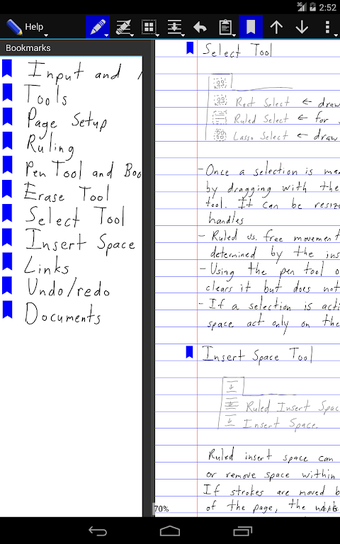 2:52
Help
Bookmarks
Input and
Tools
Page Setup
Ruling
Pen Tool and Boo
Erase Tool
Select Tool
Insert Space
Links
Undo/redo
Documents
Select Tool
Rect Select ← draw
Ruled Select ← for
Lasso Select ← draw
- Once a selection is
by dragging with the
tool. It can be
handles
- Ruled vs. free movement
determined by the ins
- Using the pen tool o
clears it but does not
- If a selection is acti
space act only on the
Insert Space Tool
Ruled Insert Spac
Insert Space
Ruled insert space can
or remove space within
If strokes are moved b
of the page, the
70%